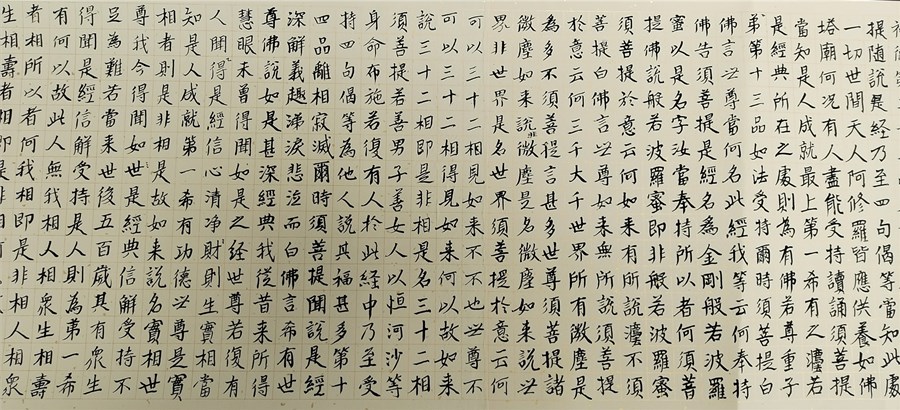 提隨說是经乃至四句偈等當知此處
一切世間天人阿修羅皆應供養如佛
塔廟何況有人盡能受持讀誦須菩提
當知是人成就最上第一希有之灋若
是經典所在之處則為有佛若尊重子
弟第十三品如法受持爾時須菩提白
佛言世尊當何名此經我等云何奉持
佛告須菩提是經名為金剛般若波羅
蜜以是名字汝當奉持所以者何須菩
提佛說般若波羅蜜即非般若波羅蜜
須菩提於意云何如来有所說灋不須
菩提白佛言世尊如来無所說須菩提
於意云何三千大千世界所有微塵是
為多不須菩提言甚多世尊須菩提諸
微塵如来說非微塵是名微塵如来說世
界非世界是名世界須菩提於意云何
可以三十二相見如来不不也世尊不
可以三十二相得見如来何以故如来
說三十二相即是非相是名三十二相
須菩提若善男子善女人以恒河沙等
身命布施若復有人於此經中乃至受
持四句偈等為他人說其福甚多第十
四品離相寂滅爾時須菩提聞說是經
深解義趣涕淚悲泣而白佛言希有世
尊佛說如是甚深經典我從昔来所得
慧眼未曾得聞如是之经世尊若復有
人得聞是經信心清净財則生實相當
知是人成就第一希有功德世尊是實
相者則是非相是故如来說名實相世
尊我今得聞如是經典信解受持不
足為難若當来世後五百歲其有眾生
得聞是經信解受持是人則為第一希
有何以故此人無我相人相眾生相壽
者相所以者何我相即是非相人相眾